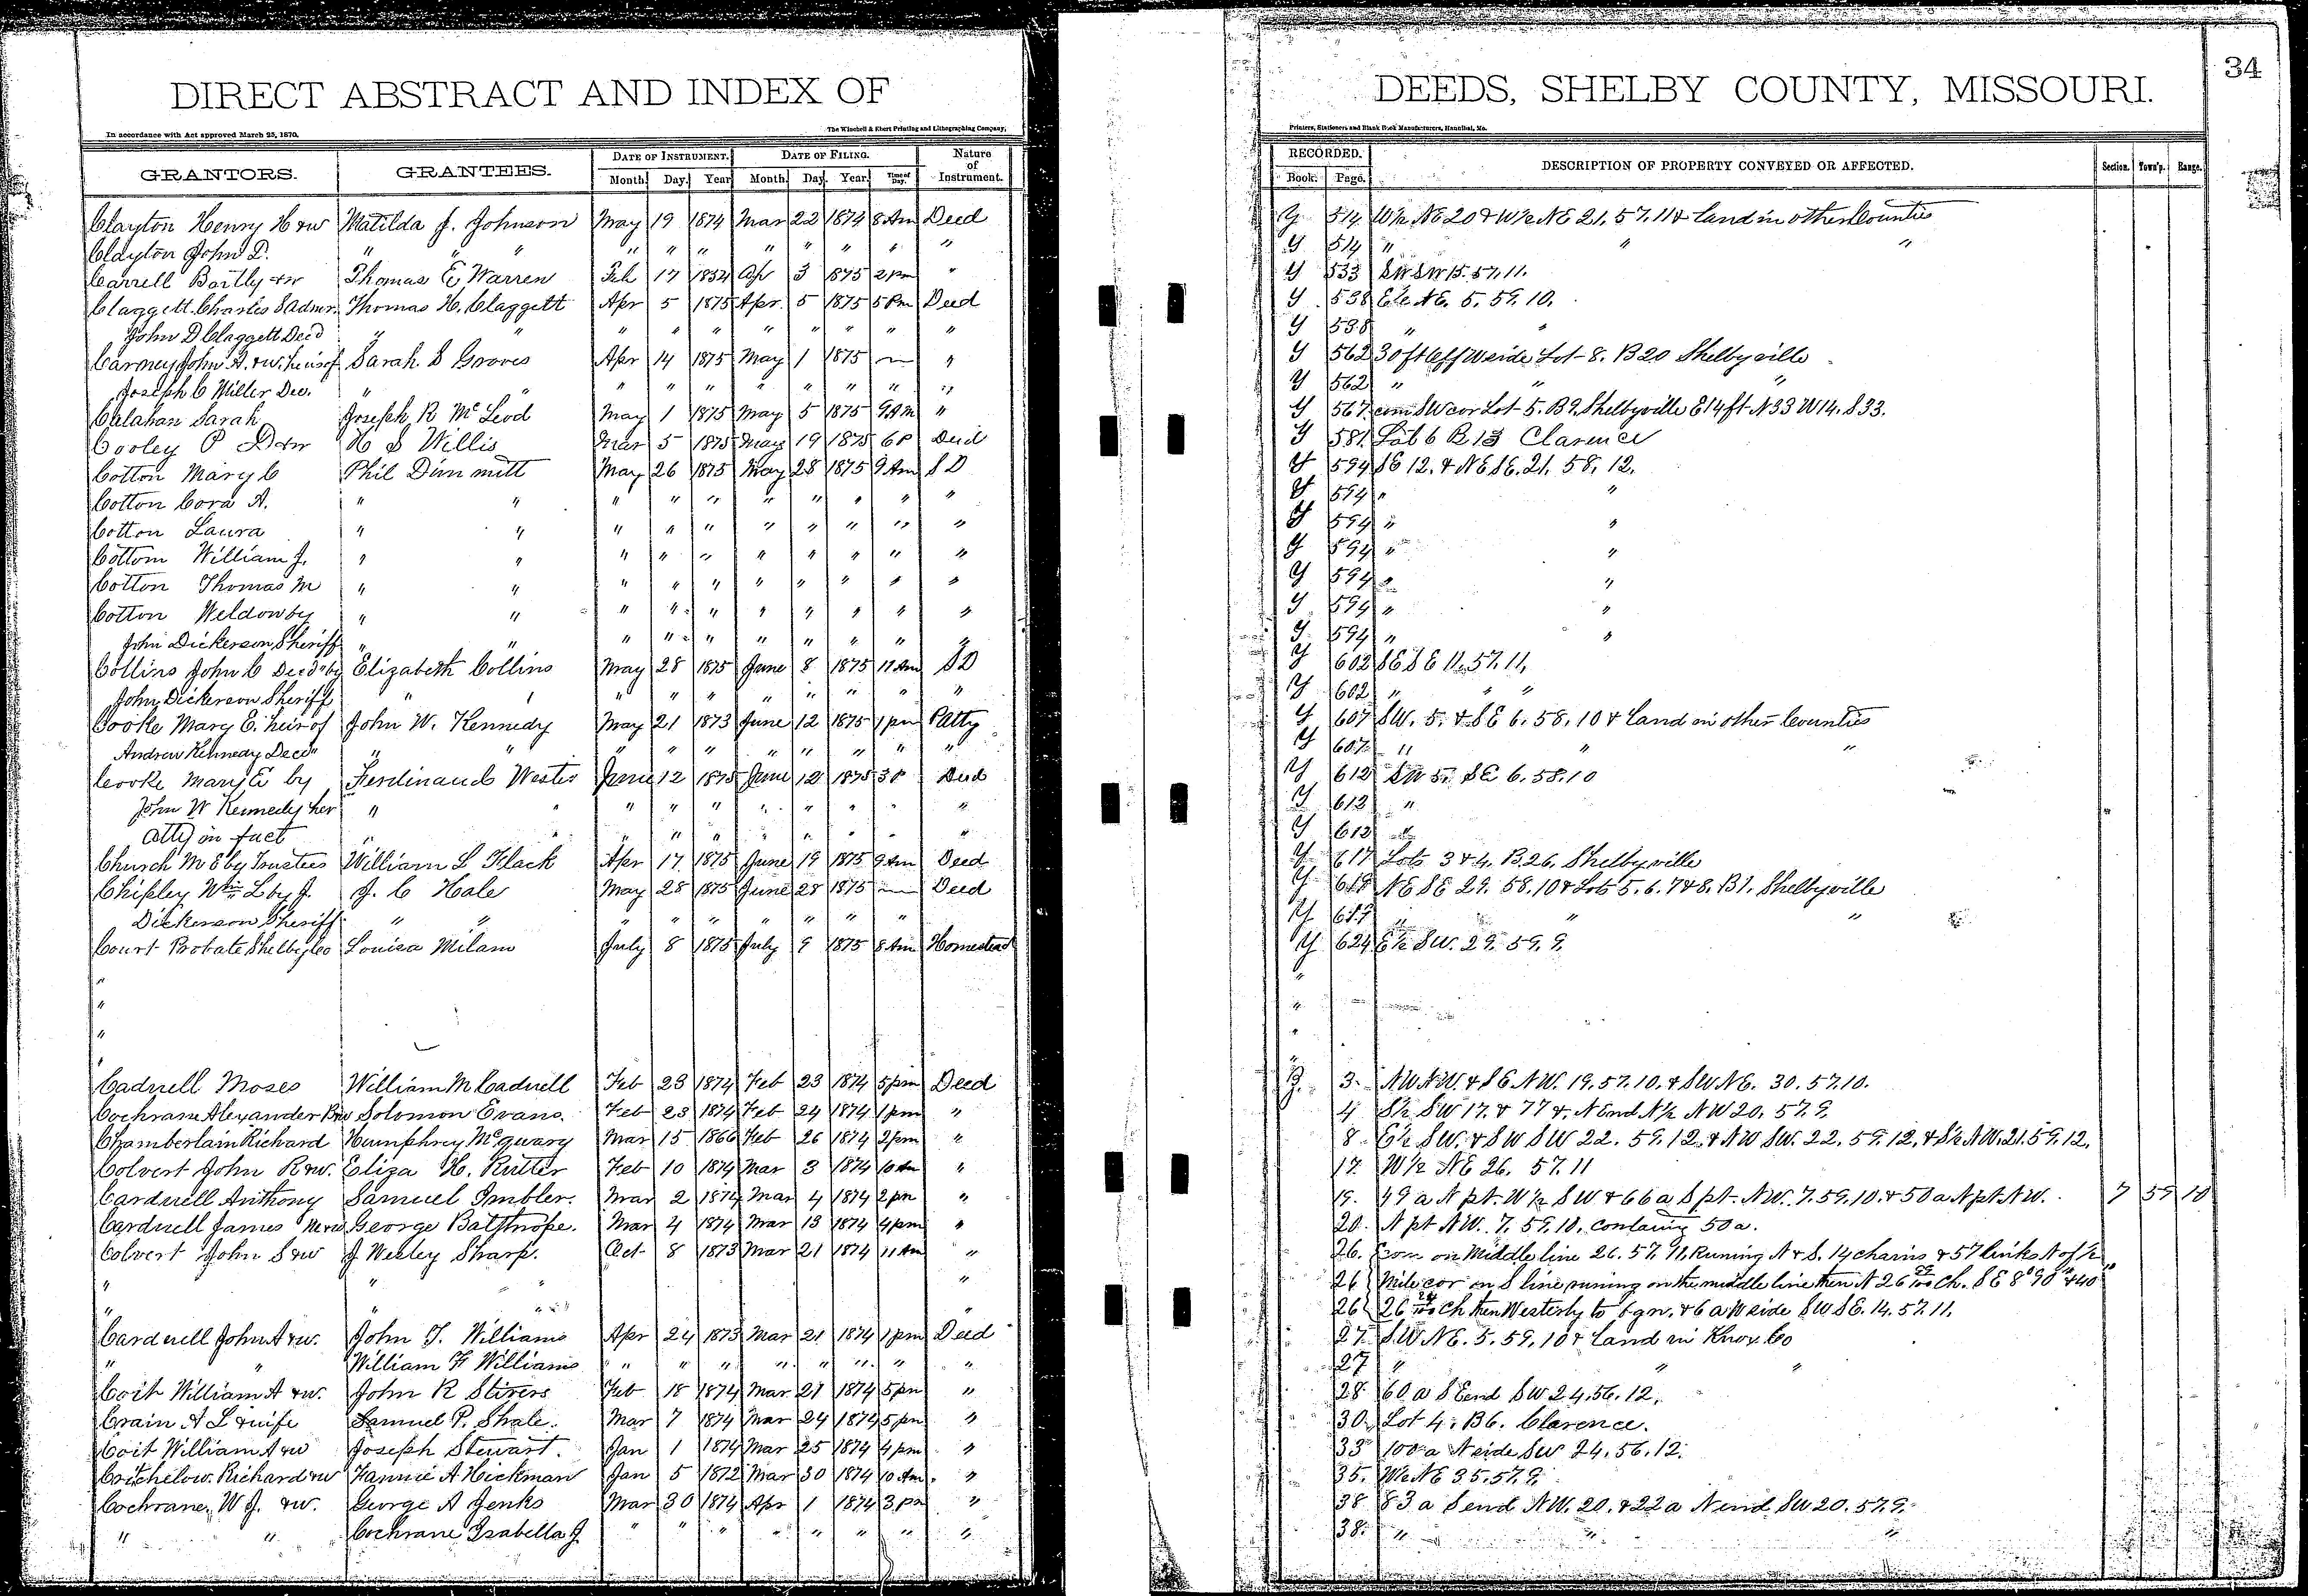 DIRECT ABSTRACT AND INDEX OF DEEDS, SHELBY COUNTY, MISSOURI. 34
In accordance with Act approved March 25, 1870. The Winchell & Ebert Printing and Lithographing Company, Printers, Stationers and Blank Book Manufacturers, Hannibal, Mo.
GRANTORS. GRANTEES. DATE OF INSTRUMENT. DATE OF FILING. Nature of Instrument. RECORDED. DESCRIPTION OF PROPERTY CONVEYED OR AFFECTED. Section. Town'p. Range.
Month. Day. Year Month. Day. Year. Time of Day. Book. Page.
Clayton Henry H & w Matilda J. Johnson May 19 1874 Mar 22 1874 8 Am Deed Y 514 W½ NE 20 & W½ NE 21. 57. 11 & land in other Counties
Clayton John D. " " " " " " " " " " " Y 514 " " "
Carrell Bartly & w Thomas E Warren Feb 17 1852 Ap 3 1875 2 pm " Y 533 SW SW 15. 57. 11.
Claggett Charles S Admr. Thomas H. Claggett Apr 5 1875 Apr. 5 1875 5 Pm Deed Y 538 E½ NE. 5. 59. 10.
John D Claggett Decd " " " " " " " " " " Y 538 " "
Carney John A. & w. heirs of Sarah S Groves Apr 14 1875 May 1 1875 — " Y 562 30 ft off W side Lot 8. B 20 Shelbyville
Joseph C Miller Dec. " " " " " " " " " " Y 562 " " "
Calahan Sarah Joseph R McLeod May 1 1875 May 5 1875 9 AM " Y 567 com SW cor Lot 5. B 9. Shelbyville E 14 ft N 33 W 14. S 33.
Cooley P D & w H S Willis Mar 5 1875 May 19 1875 6 P Deed Y 581 Lot 6 B 13 Clarence
Cotton Mary C Phil Dimmitt May 26 1875 May 28 1875 9 Am S D Y 594 SE 12. & NE SE. 21. 58. 12.
Cotton Cora A. " " " " " " " " " " Y 594 " "
Cotton Laura " " " " " " " " " " Y 594 " "
Cottom William J. " " " " " " " " " " Y 594 " "
Cotton Thomas M " " " " " " " " " " Y 594 " "
Cotton Weldow by " " " " " " " " " " Y 594 " "
John Dickerson Sheriff " " " " " " " " " " Y 594 " "
Collins John C Decd by Elizabeth Collins May 28 1875 June 8 1875 11 Am S D Y 602 SE SE 11. 57. 11,
John Dickerson Sheriff " " " " " " " " " " Y 602 " " "
Cooke Mary E. heir of John W. Kennedy May 21 1873 June 12 1875 1 pm P atty Y 607 SW. 5. & SE 6. 58. 10 & land in other Counties
Andrew Kennedy Decd " " " " " " " " " " Y 607 " " "
Cooke Mary E by Ferdinand June 12 1875 June 12 1875 3 P Deed Y 612 SW 5. SE 6. 58. 10
John W Kennedy her " " " " " " " " " " Y 612 "
atty in fact " " " " " " " " " " Y 612 "
Church M E by Trustees William L Flack Apr 17 1875 June 19 1875 9 Am Deed Y 617 Lots 3 & 4. B. 26. Shelbyville
Chipley Wm L by J. J. C Hale May 28 1875 June 28 1875 — Deed Y NE SE 29. 58. 10 & Lots 5. 6. 7 & 8. B 1. Shelbyville
Dickerson Sheriff " " " " " " " " " Y " " "
Court Probate Shelby Co Louisa Milam July 8 1875 July 9 1875 8 Am Homestead Y 624 E½ SW. 29. 59. 9.
" "
" "
" "
" "
Cadwell Moses William M Cadwell Feb 23 1874 Feb 23 1874 5 pm Deed Z. 3. NW NW. & SE NW. 19. 57. 10. & SW NE. 30. 57. 10.
Cochrane Alexander B & w Solomon Evans. Feb 23 1874 Feb 24 1874 1 pm " 4 S½ SW 17. & 77 a. N End N½ NW 20. 57. 9.
Chamberlain Richard Humphrey McQuary Mar 15 1866 Feb 26 1874 2 pm " 8 E½ SW. & SW SW 22. 59. 12. & NW SW. 22. 59. 12. & S½ NW. 21. 59. 12.
Colvert John R & w. Eliza H. Rutter Feb 10 1874 Mar 3 1874 10 Am " 17. W½ NE 26. 57. 11
Cardwell Anthony Samuel Imbler. Mar 2 1874 Mar 4 1874 2 pm " 19. 49 a N pt. W½ SW & 66 a S pt. NW. 7. 59. 10. & 50 a N pt NW. 7 59 10
Cardwell James M & w George Batthrope. Mar 4 1874 Mar 13 1874 4 pm " 20. N pt NW. 7. 59. 10. containing 50 a.
Colvert John S & w J Wesley Sharp. Oct 8 1873 Mar 21 1874 11 Am " 26. Com on Middle line 26. 57. 11. Runing N & S. 14 chains & 57 links N of ½
" " " " 26 Mile cor on S line runing on the middle line then N 26 Ch. S E 8° 90" & 40"
" " " " 26 26 Ch then Westerly to bgn. & 6 a W side SW SE. 14. 57. 11.
Cardwell John A & w. John T. Williams Apr 24 1873 Mar 21 1874 1 pm Deed 27. SW NE. 5. 59. 10 & land in Knox Co
" " William F Williams " " " " " " " " 27 " " "
Coit William A & w. John R Stivers Feb 18 1874 Mar 21 1874 5 pm " 28. 60 a S End SW 24. 56. 12.
Crain A L & wife Samuel P. Shale. Mar 7 1874 Mar 24 1874 5 pm " 30. Lot 4. B 6. Clarence.
Coit William A & w Joseph Stewart. Jan 1 1874 Mar 25 1874 4 pm " 33 100 a N side SW 24. 56. 12.
Critchelow Richard & w Fannie A Hickman Jan 5 1872 Mar 30 1874 10 Am. " 35. W½ NE 35. 57. 9.
Cochrane W J. & w. George A Jenks Mar 30 1874 Apr 1 1874 3 pm " 38 83 a S end NW. 20. & 22 a N end SW 20. 57. 9.
" " Cochrane Isabella J " " " " " " " " 38. " " "